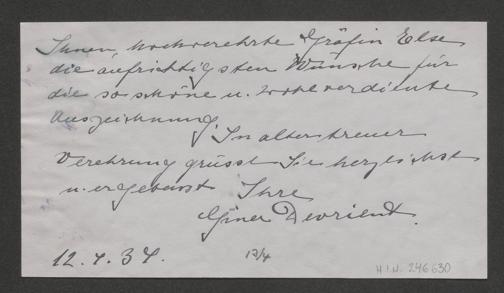 Ihnen, hochverehrte Gräfin Else
die aufrichtigsten Wünsche für
die so schöne u. wohlverdiente
Auszeichnung.
In alter treuer
Verehrung grüsst Sie herzlichst
u. ergebenst Ihre
Devrient.
12.4.34.
13/4
H.I.N. 246630